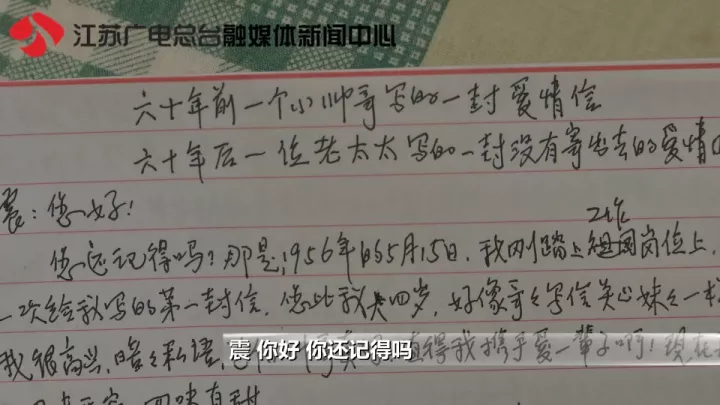 江苏广电总台融媒体新闻中心
六十年前一个小帅哥写的一封爱情信
六十年后一位老太太写的一封没有寄出去的爱情
震：您好！
工作
您还记得吗？那是1956年的5月15日，我刚踏上祖国岗位上，
一次给我写的第一封信，您比我大四岁，好像哥々写信关心妹々一
我很高兴，暗々私语，值得我携手爱一辈子啊！现在
震 你好 你还记得吗
回味有甜